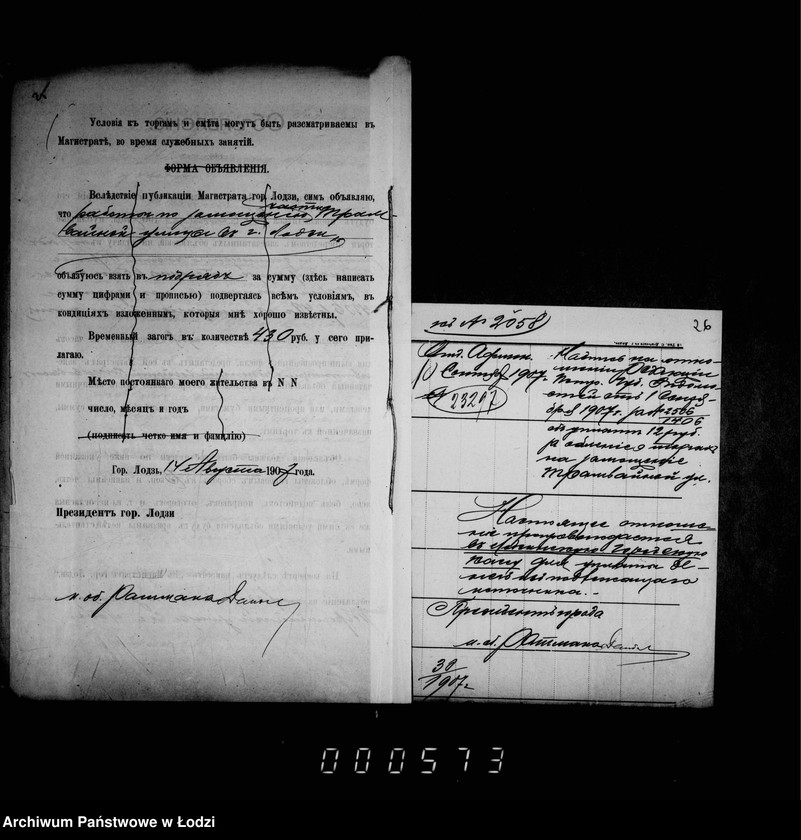 Условія къ торгамъ и смѣта могутъ быть разсматриваемы въ
Магистратѣ, во время служебныхъ занятій.
ФОРМА ОБЪЯВЛЕНІЯ.
Вслѣдствіе публикаціи Магистрата гор. Лодзи, симъ объявляю,
что работы по замощенію части Трам-
вайной улицы въ г. Лодзи
обязуюсь взять въ подрядъ за сумму (здѣсь написать
сумму цифрами и прописью) подвергаясь всѣмъ условіямъ, въ
кондиціяхъ изложеннымъ, которыя мнѣ хорошо извѣстны.
Временный залогъ въ количествѣ 430 руб. у сего при-
лагаю.
Мѣсто постояннаго моего жительства въ N N
число, мѣсяцъ и годъ
(подписать четко имя и фамилію)
Гор. Лодзь, 14 Августа 1907 года.
Президентъ гор. Лодзи
и. об.
26
№ 2058
Сентября 1907
23207
Надпись на отно-
шеніи Редакціи
Петр. Губ. Вѣдомо-
стей отъ 1 Сентя-
бря 1907 г. за № 2566
1406
объ уплатѣ 12 руб.
за
на замощеніе
Трамвайной ул.
Настоящее отноше-
ніе препровождается
въ Лодзинскую Городскую
Кассу для уплаты де-
негъ изъ подлежащаго
источника.
Президентъ города
и. об.
30
1907 г.
000573
Archiwum Państwowe w Łodzi